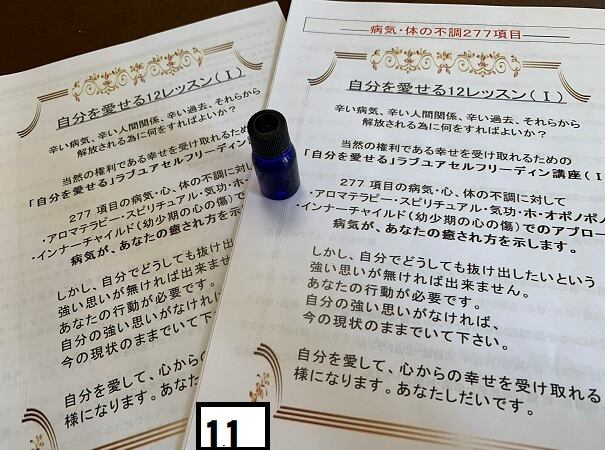 自分を愛せる12レッスン(Ⅰ)
辛い病気、辛い人間関係、辛い過去、それらから
解放される為に何をすればよいか?
当然の権利である幸せを受け取れるための
「自分を愛せる」ラブユアセルフリーディン講
277 項目の病気・心、体の不調に対して
・アロマテラピー・スピリチュアル・気功・ホ・オポノポ
・インナーチャイルド(幼少期の心の傷)でのアプロー
病気が、あなたの癒され方を示します。
しかし、自分でどうしても抜け出
強い思いが無ければ出来ませ
あなたの行動が必要です。
自分の強い思いがなければ
今の現状のままでいて下
自分を愛して、心からの
様になります。あなた
病気・体の不調277項目
自分を愛せる12レッスン(Ⅰ)
辛い病気、辛い人間関係、辛い過去、それらから
解放される為に何をすればよいか?
当然の権利である幸せを受け取れるための
「自分を愛せる」ラブユアセルフリーディン講座(Ⅰ
277 項目の病気・心、体の不調に対して
・アロマテラピー・スピリチュアル・気功・ホ・オポノポノ
・インナーチャイルド(幼少期の心の傷)でのアプロー
病気が、あなたの癒され方を示します。
しかし、自分でどうしても抜け出したいという
強い思いが無ければ出来ません。
あなたの行動が必要です。
自分の強い思いがなければ、
今の現状のままでいて下さい。
自分を愛して、心からの幸せを受け取れる
様になります。あなたしだいです。
11